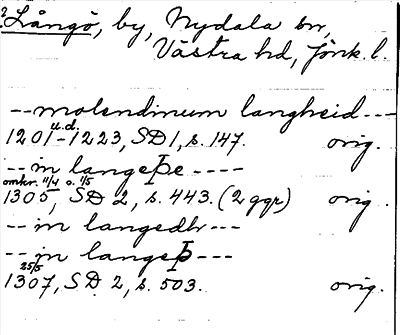 ? Långö, by, Nydala sn,
Västra hd, Jönk. l.
-- molendinum langheid ---
u.d.
1201-1223, SD 1, s. 147. orig.
-- in langeþe ----
omkr. 11/4 o. 1/5
1305, SD 2, s. 443. (2 ggr) orig.
-- in langedh ---
-- in langeþ ---
25/5
1307, SD 2, s. 503. orig.